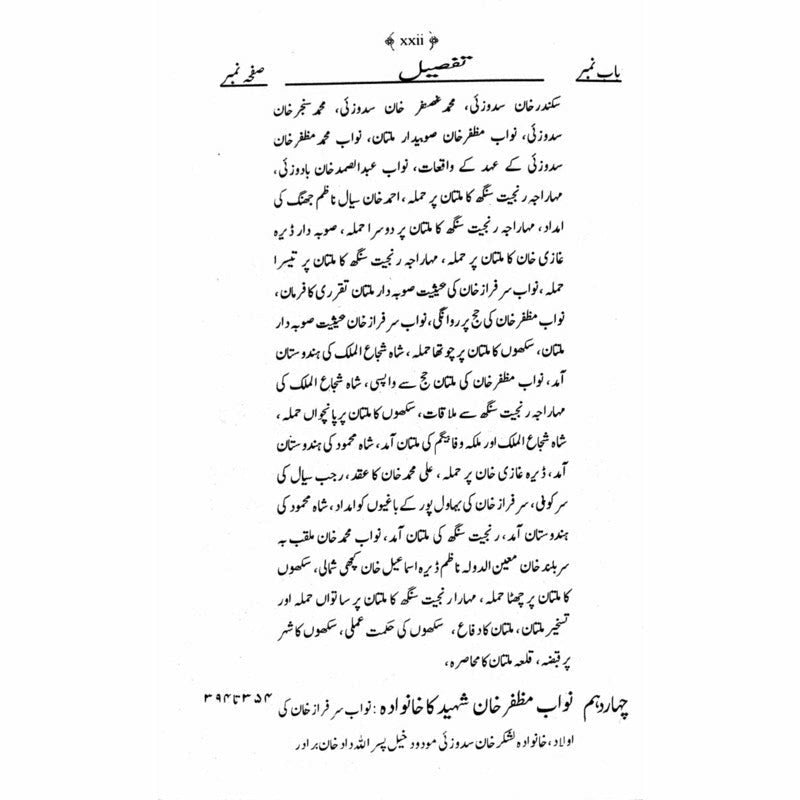 xxii
باب نمبر تفصیل صفحہ نمبر
سکندرخان سدوزئی، محمد غضنفر خان سدوزئی، محمد سنجرخان
سدوزئی، نواب مظفرخان صوبیدار ملتان، نواب محمد مظفرخان
سدوزئی کے عہد کے واقعات، نواب عبدالصمدخان بادوزئی،
مہاراجہ رنجیت سنگھ کا ملتان پر حملہ، احمدخان سیال ناظم جھنگ کی
امداد، مہاراجہ رنجیت سنگھ کا ملتان پر دوسرا حملہ، صوبہ دار ڈیرہ
غازی خان کا ملتان پر حملہ، مہاراجہ رنجیت سنگھ کا ملتان پر تیسرا
حملہ، نواب سرفرازخان کی حیثیت صوبہ دار ملتان تقرری کا فرمان،
نواب مظفرخان کی حج پر روانگی، نواب سرفرازخان حیثیت صوبہ دار
ملتان، سکھوں کا ملتان پر چوتھا حملہ، شاہ شجاع الملک کی ہندوستان
آمد، نواب مظفرخان کی ملتان حج سے واپسی، شاہ شجاع الملک کی
مہاراجہ رنجیت سنگھ سے ملاقات، سکھوں کا ملتان پر پانچواں حملہ،
شاہ شجاع الملک اور ملکہ وفا بیگم کی ملتان آمد، شاہ محمود کی ہندوستان
آمد، ڈیرہ غازی خان پر حملہ، علی محمدخان کا عقد، رجب سیال کی
سرکوبی، سرفرازخان کی بہاول پور کے باغیوں کو امداد، شاہ محمود کی
ہندوستان آمد، رنجیت سنگھ کی ملتان آمد، نواب محمدخان ملقب بہ
سربلندخان معین الدولہ ناظم ڈیرہ اسماعیل خان کچھی شمالی، سکھوں
کا ملتان پر چھٹا حملہ، مہارا رنجیت سنگھ کا ملتان پر ساتواں حملہ اور
تسخیر ملتان، ملتان کا دفاع، سکھوں کی حکمت عملی، سکھوں کا شہر
پر قبضہ، قلعہ ملتان کا محاصرہ،
چہاردہم نواب مظفرخان شہید کا خانوادہ: نواب سرفرازخان کی ۳۵۴ تا ۳۹۴
اولاد، خانوادہ لشکرخان سدوزئی مودود خیل پسر اللہ دادخان برادر